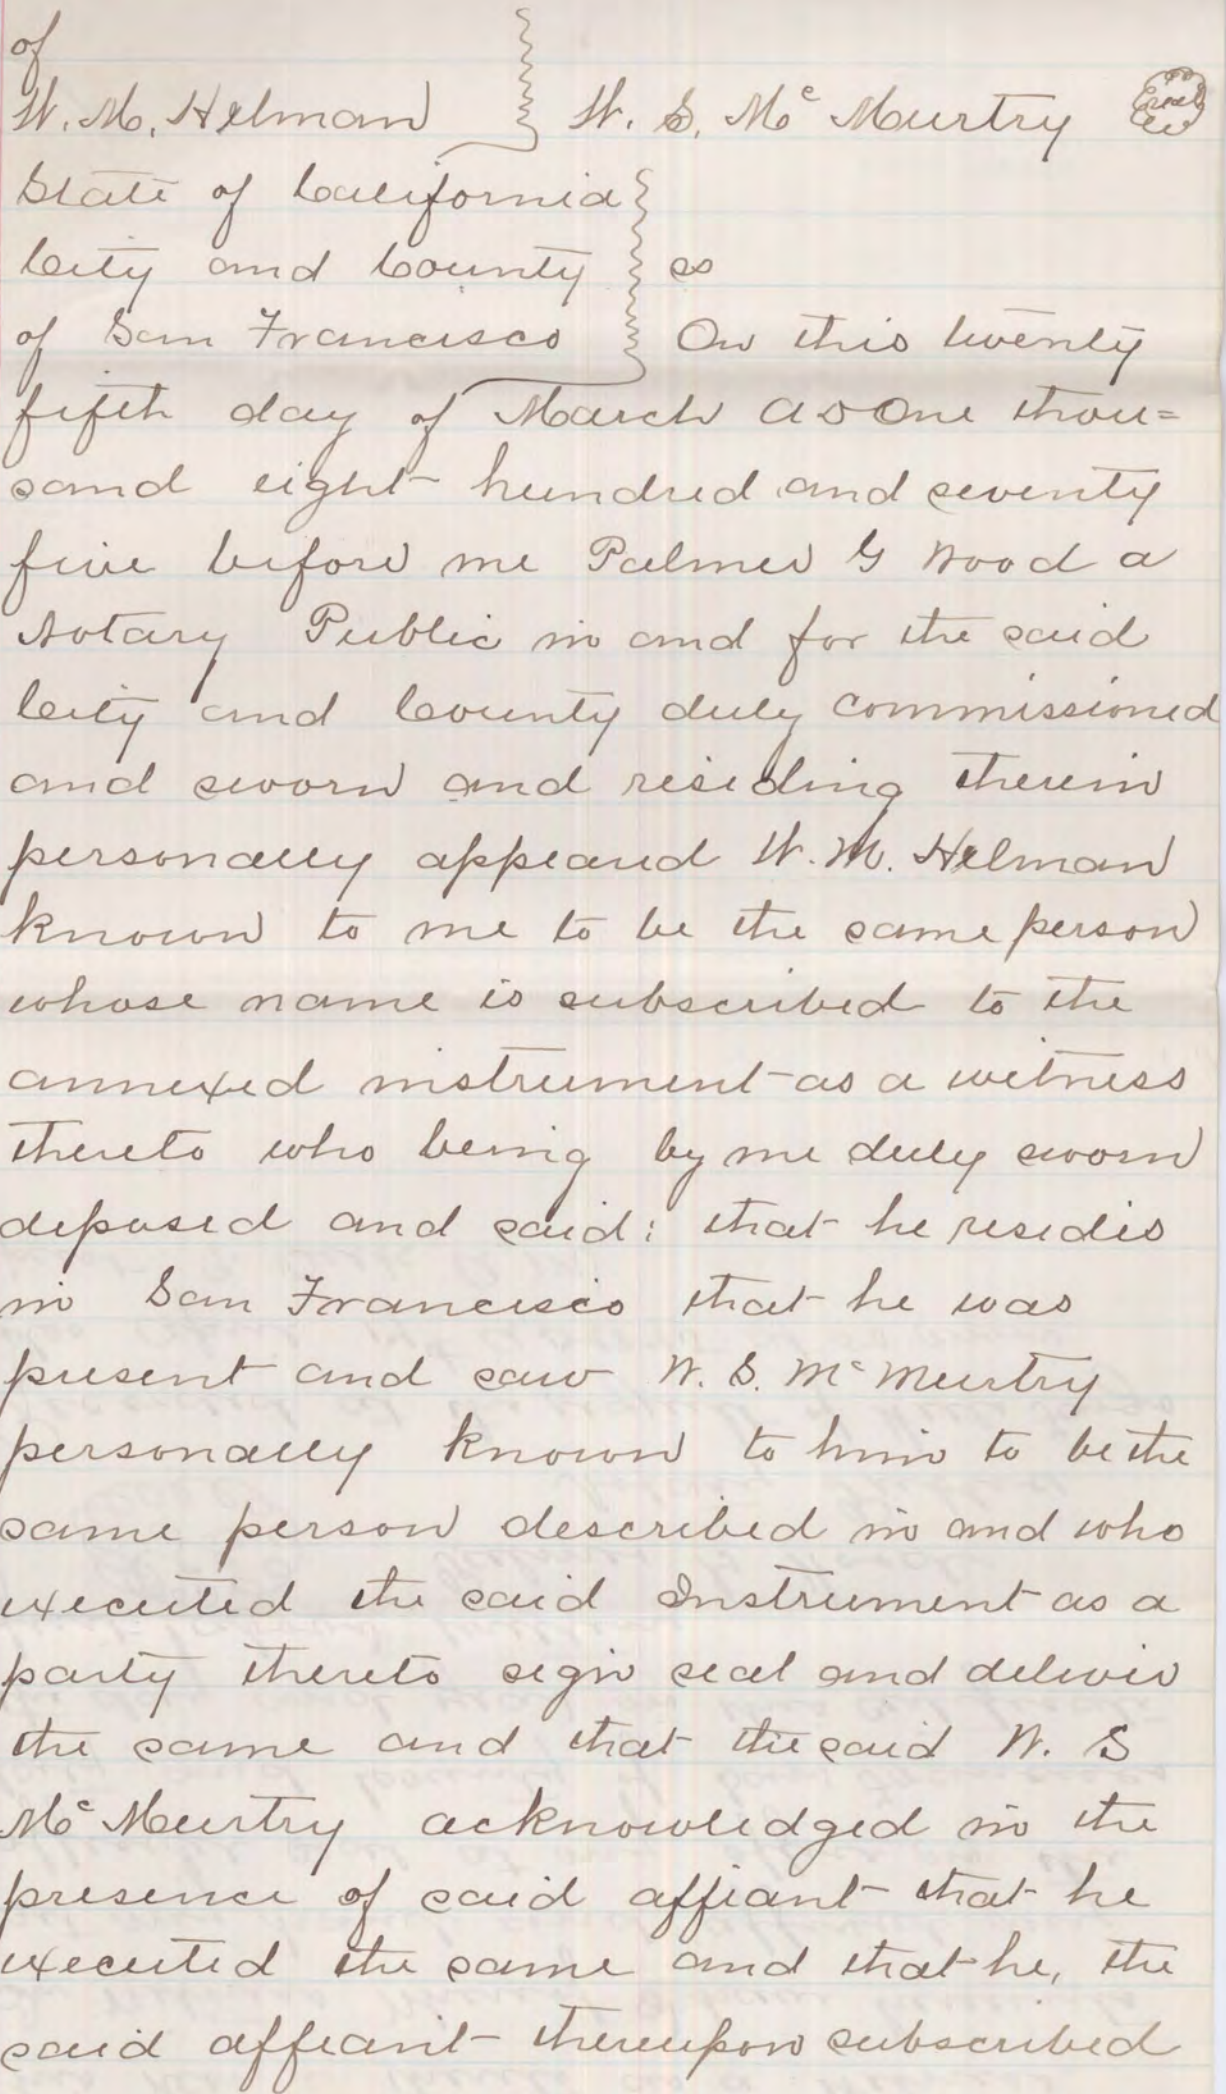 of
W. M. Helman } W. S. Mc Murtry Seal
State of California }
City and County } ss
of San Francisco } On this twenty
fifth day of March AD One thou=
sand eight hundred and seventy
five before me Palmer G Wood a
Notary Public in and for the said
City and County duly commissioned
and sworn and residing therein
personally appeared W. M. Helman
known to me to be the same person
whose name is subscribed to the
annexed instrument as a witness
thereto who being by me duly sworn
deposed and said: that he resides
in San Francisco that he was
present and saw W. S. Mc Murtry
personally known to him to be the
same person described in and who
executed the said Instrument as a
party thereto sign seal and deliver
the same and that the said W. S
Mc Murtry acknowledged in the
presence of said affiant that he
executed the same and that he, the
said affiant thereupon subscribed